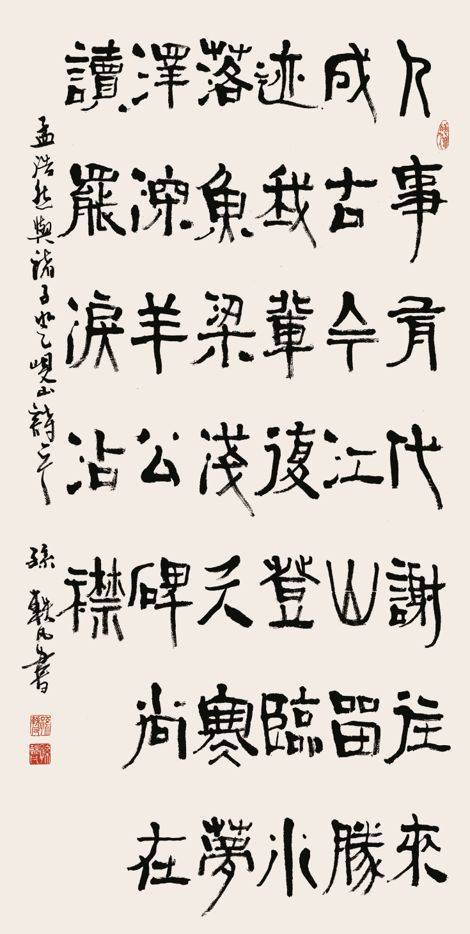 人事有代謝往來
成古今江山留勝
迹我輩復登臨水
落魚梁淺天寒夢
澤深羊公碑尚在
讀罷淚沾襟
孟浩然與諸子登峴山詩一首 孫軼凡書